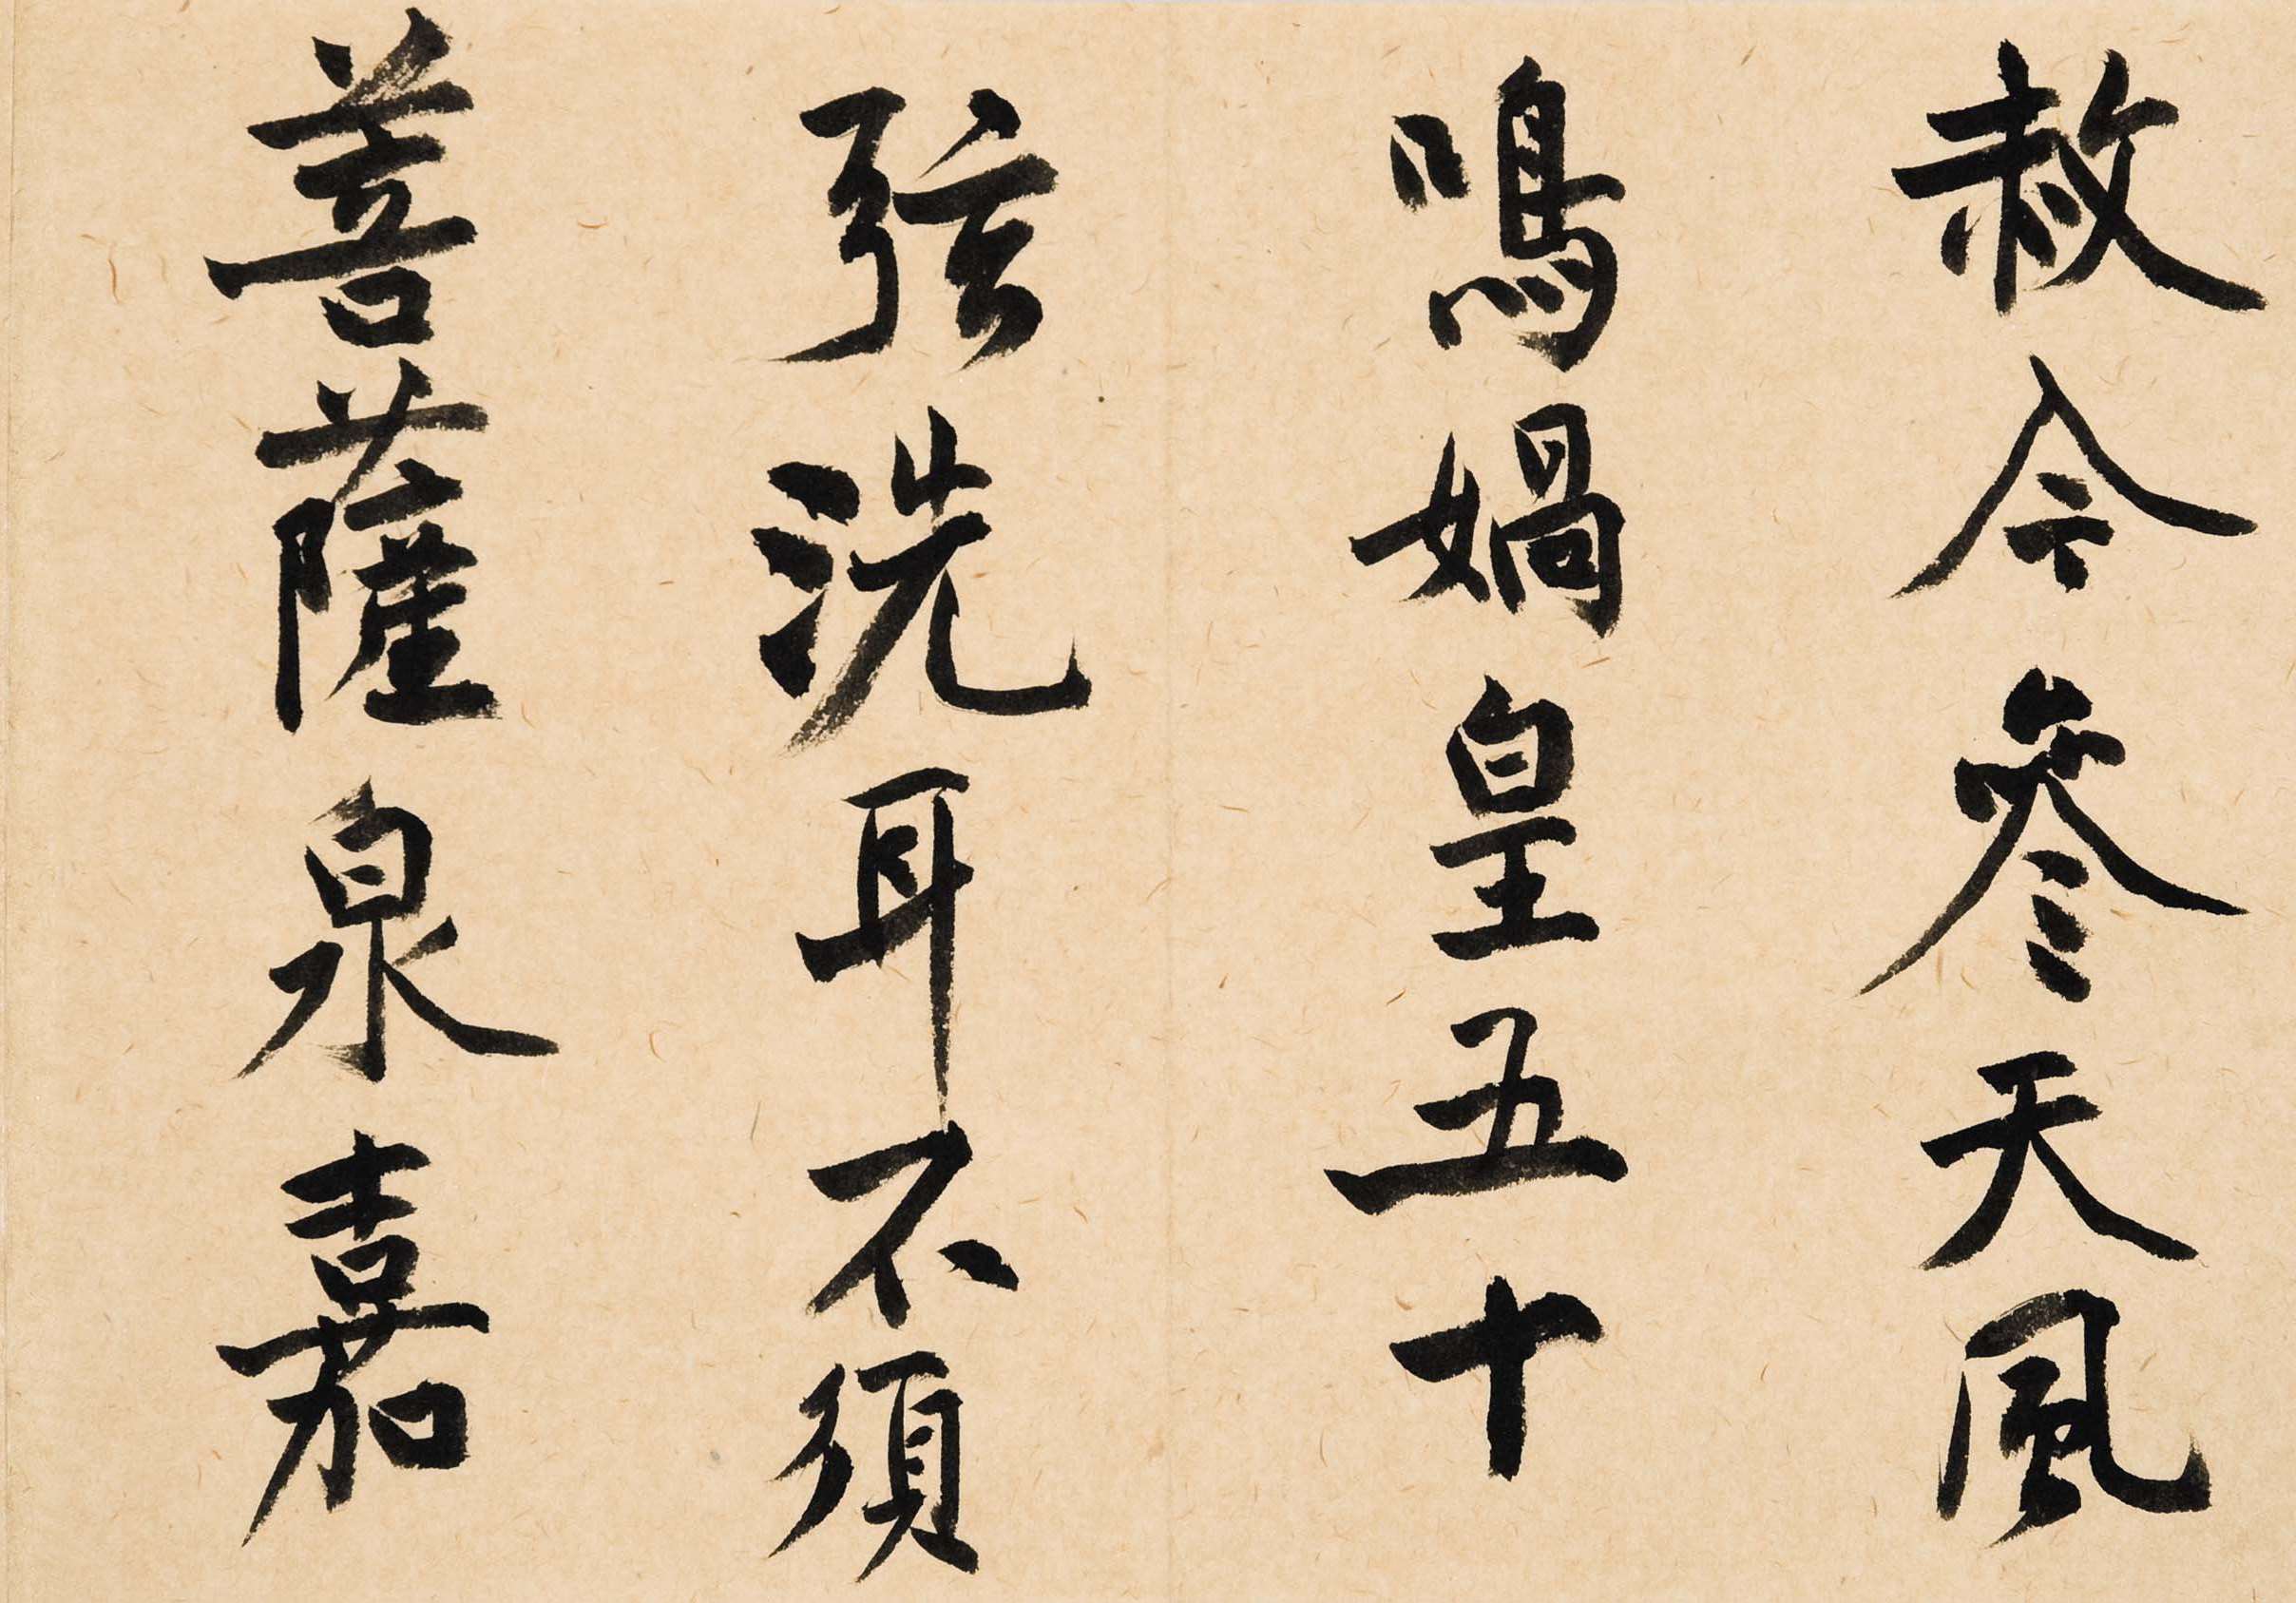 赦令參天風
鳴媧皇五十
弦洗耳不須
菩薩泉嘉